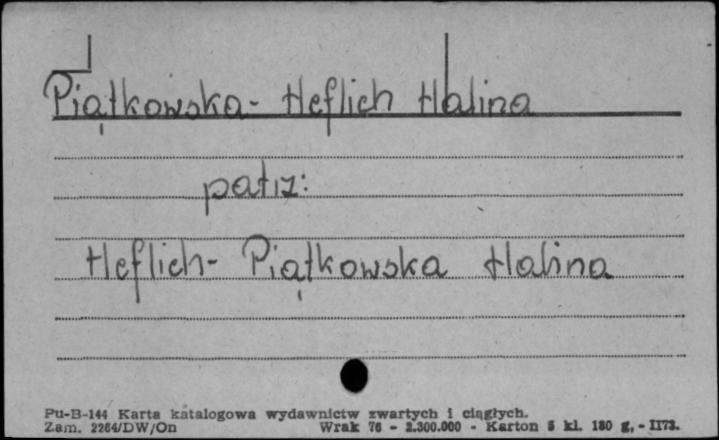 Piątkowska- Heflich Halina
patrz:
Heflich- Piątkowska Halina
Pu-B-144 Karta katalogowa wydawnictw zwartych i ciągłych.
Zam. 2264/DW/On Wrak 76 - 2.300.000 - Karton 5 kl. 180 g. - II73.